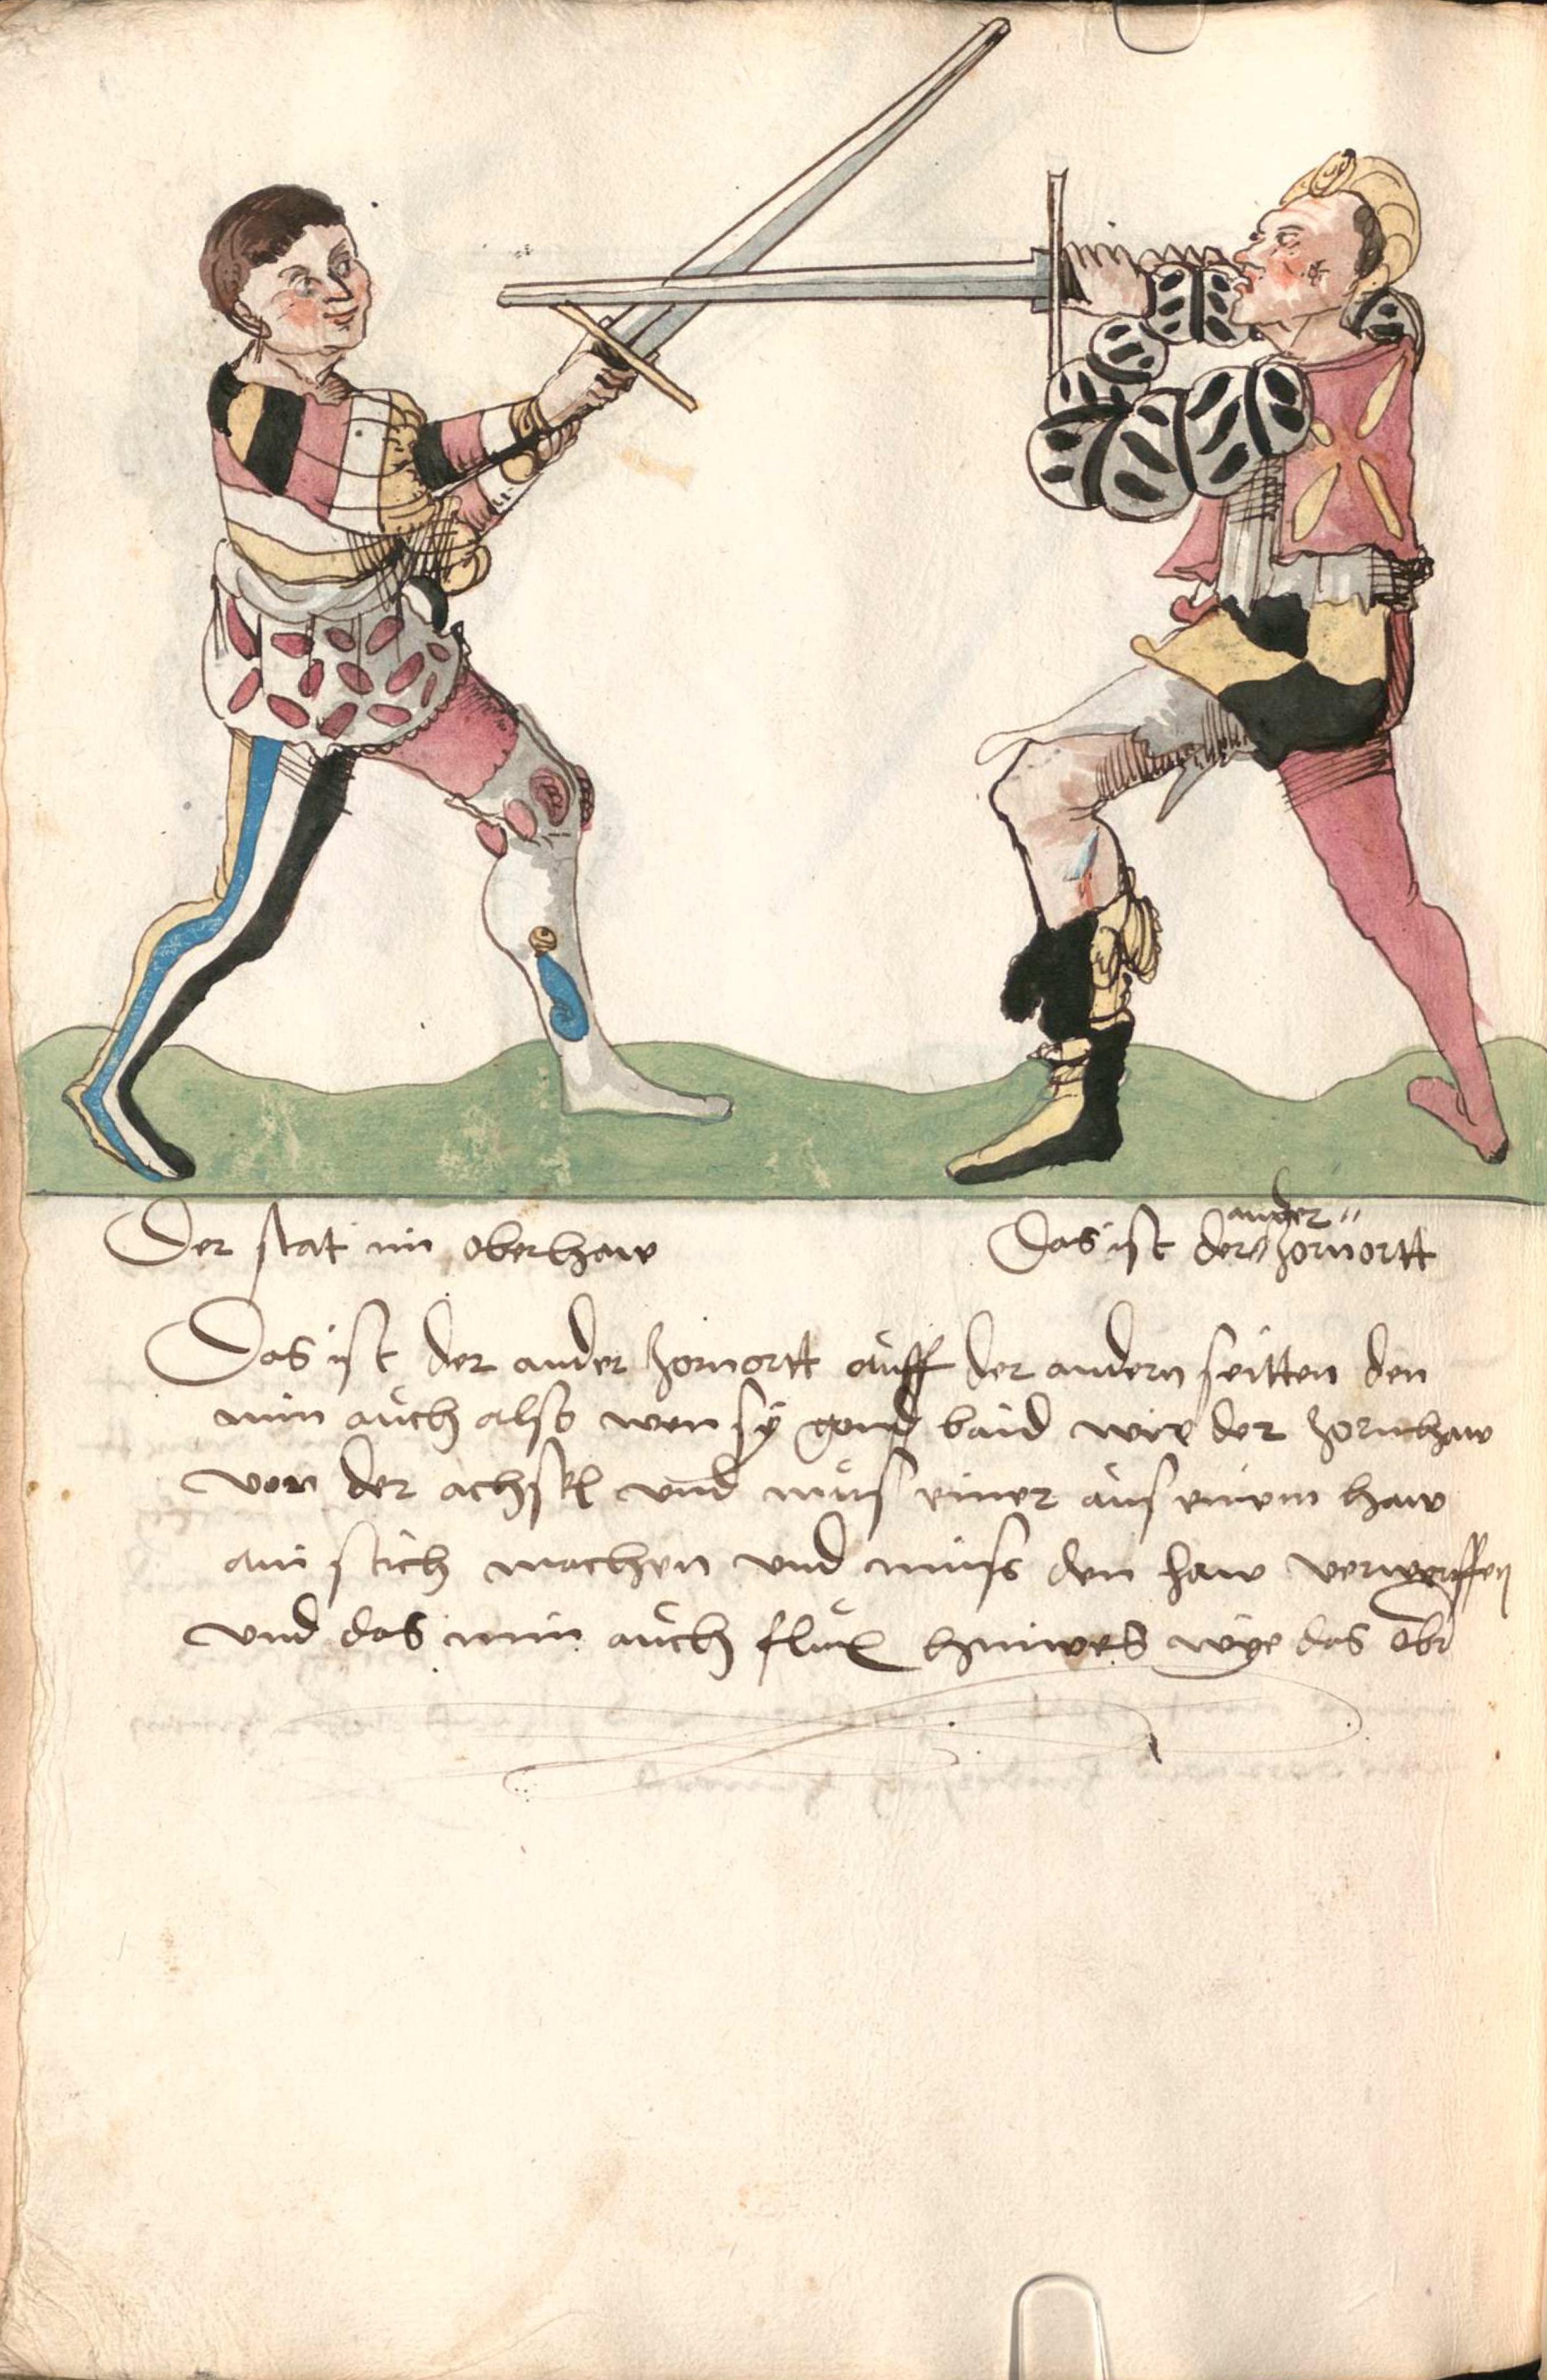 Der stat im oberhaw
Das ist der ander zornortt
Das ist der ander zornortt auff der andern seitten den
nim auch also wen sy gond baid wie der zornhaw
von der achsel und mus einer aus einem haw
ain stich machen und muss den haw verwerffen
und das nim auch flux hinweg wye das obr